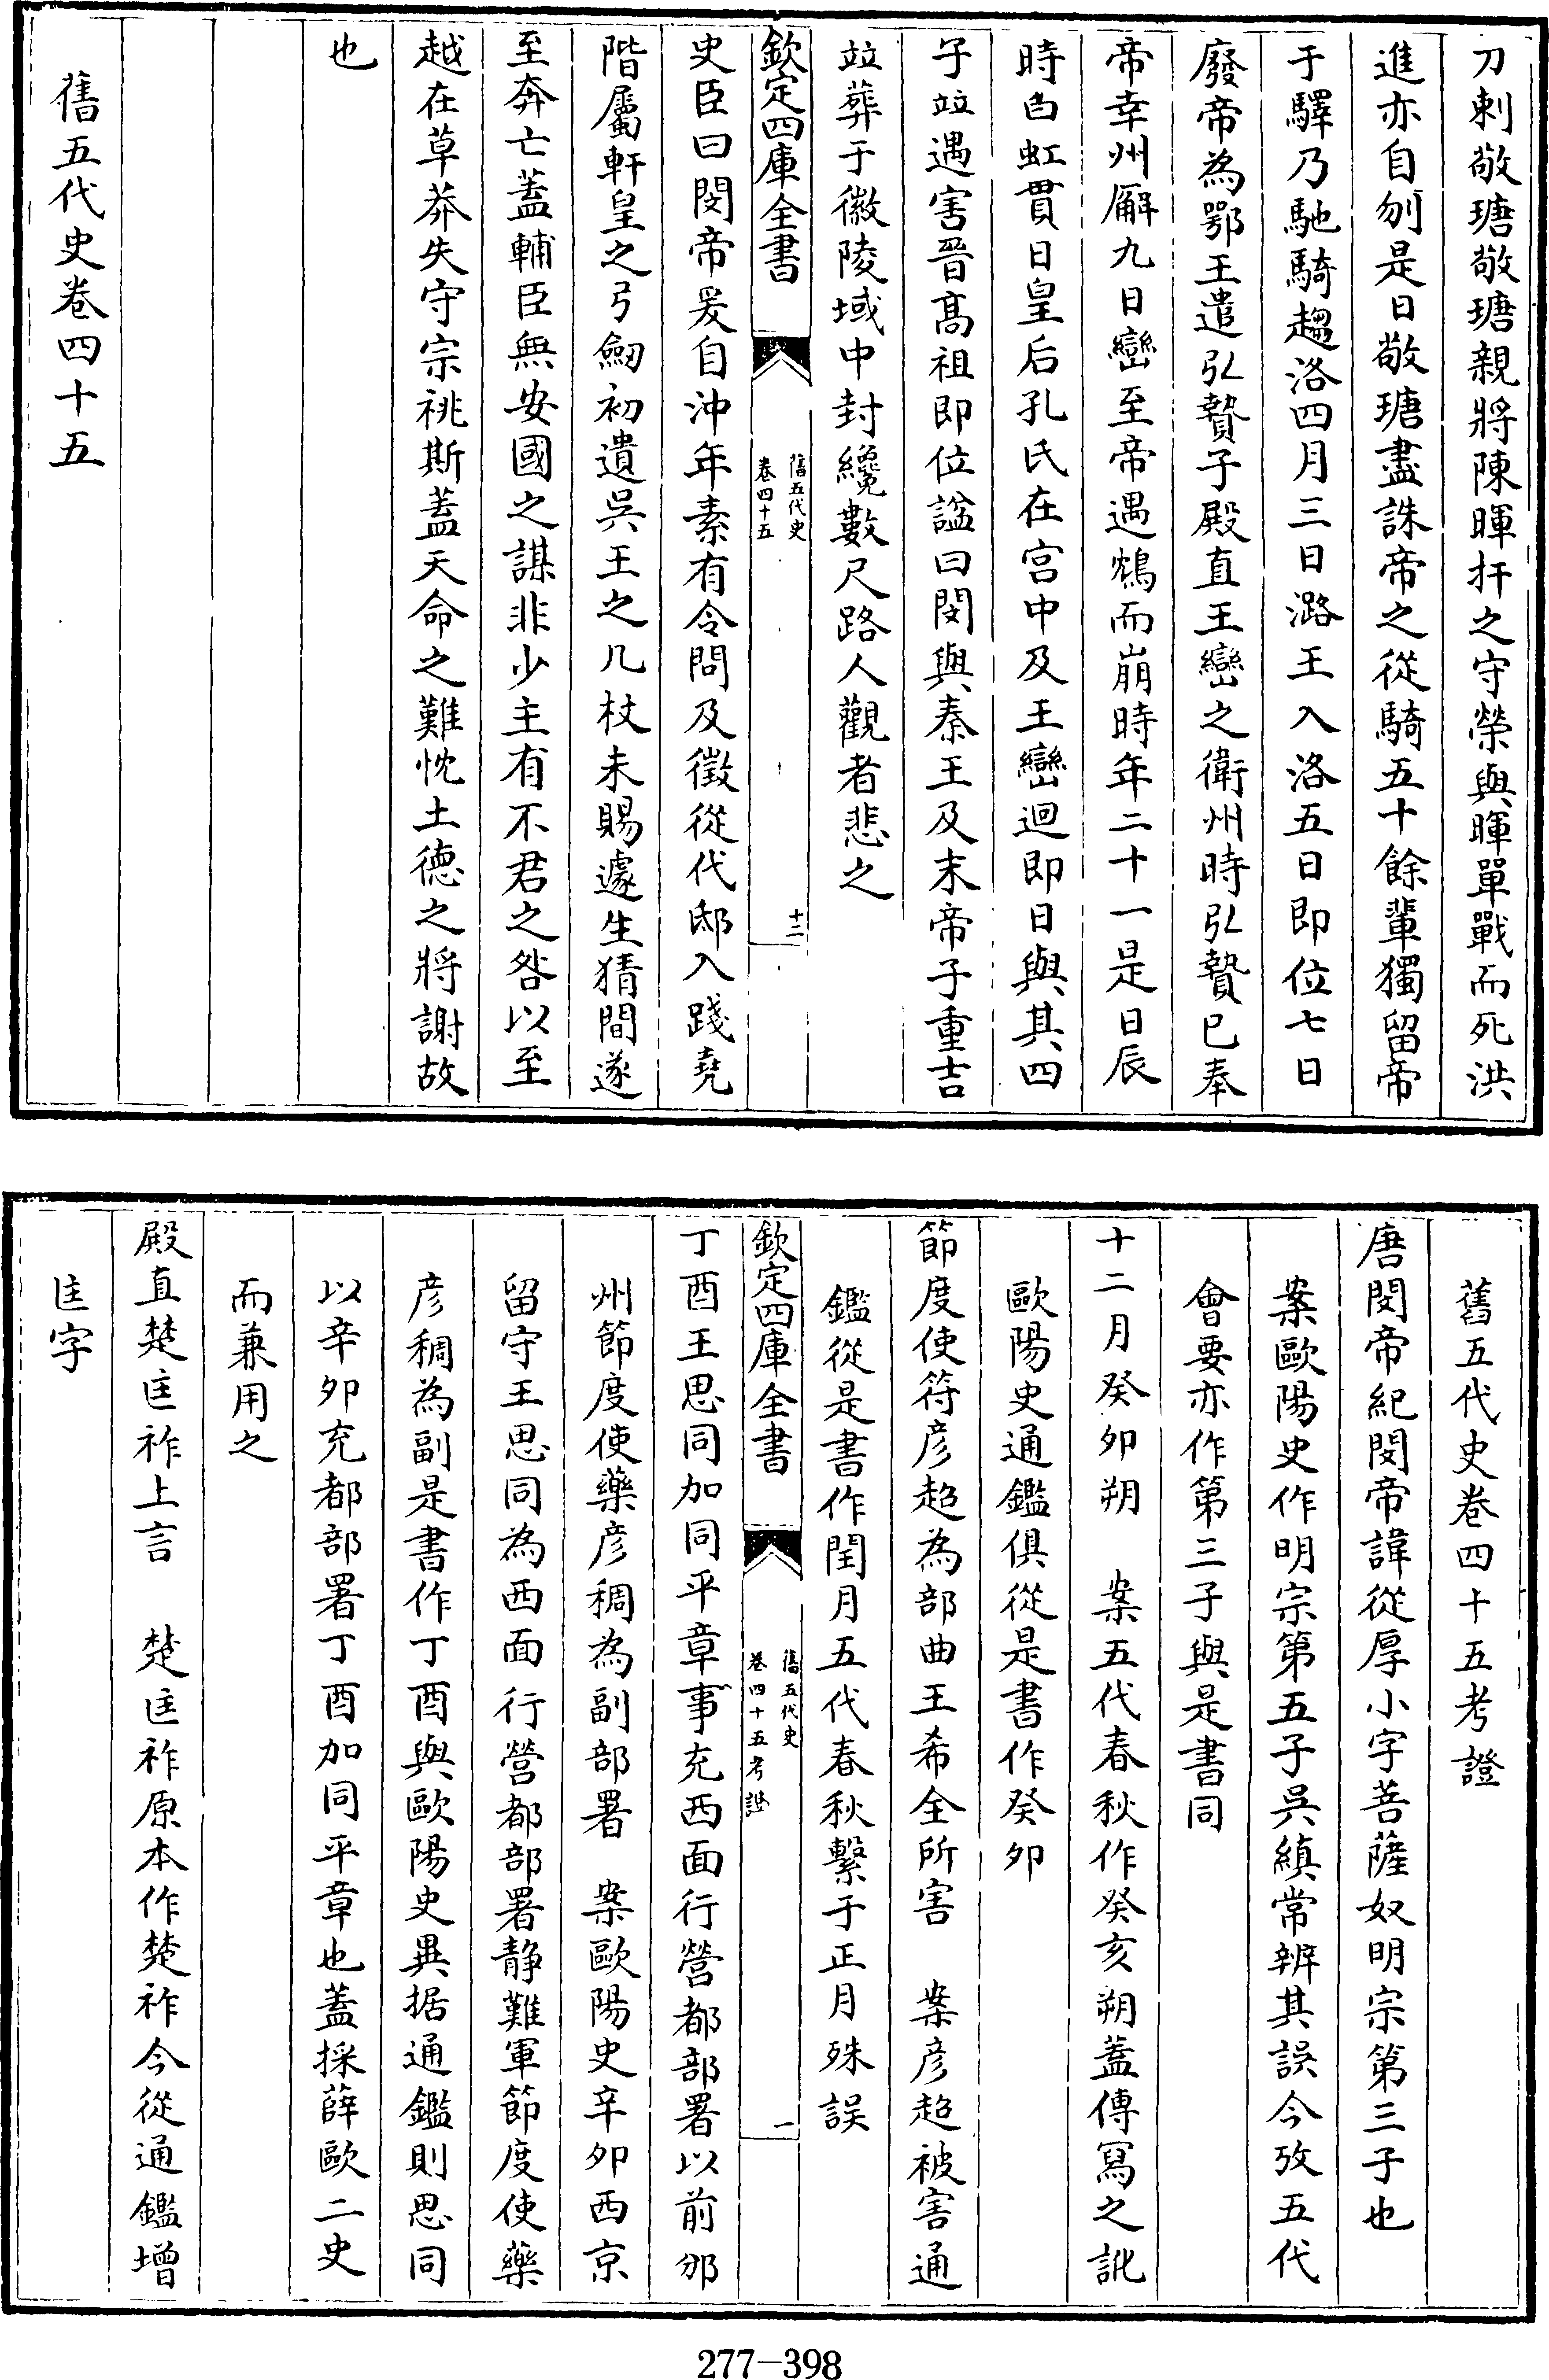 刀刺敬瑭敬瑭親將陳暉扞之守榮與暉單戰而死洪
進亦自刎是日敬瑭盡誅帝之從騎五十餘輩獨留帝
于驛乃馳騎趨洛四月三日潞王入洛五日即位七日
廢帝為鄂王遣弘贄子殿直王巒之衛州時弘贄已奉
帝幸州廨九日巒至帝遇鴆而崩時年二十一是日辰
時白虹貫日皇后孔氏在宫中及王巒迴即日與其四
子竝遇害晉髙祖即位諡曰閔與秦王及末帝子重吉
竝葬于徽陵域中封纔數尺路人觀者悲之
欽定四庫全書
舊五代史
卷四十五
十二
史臣曰閔帝爰自沖年素有令問及徵從代邸入踐堯
階屬軒皇之弓劒初遺吳王之几杖未賜遽生猜間遂
至奔亡蓋輔臣無安國之謀非少主有不君之咎以至
越在草莽失守宗祧斯蓋天命之難忱土德之將謝故
也
舊五代史卷四十五
舊五代史卷四十五考證
唐閔帝紀閔帝諱從厚小字菩薩奴明宗第三子也
案歐陽史作明宗第五子吳縝常辨其誤今攷五代
會要亦作第三子與是書同
十二月癸夘朔 案五代春秋作癸亥朔蓋傳寫之訛
歐陽史通鑑俱從是書作癸夘
節度使符彦超為部曲王希全所害 案彦超被害通
鑑從是書作閏月五代春秋繫于正月殊誤
欽定四庫全書
舊五代史
卷四十五考證
一
丁酉王思同加同平章事充西面行營都部署以前邠
州節度使藥彦稠為副部署 案歐陽史辛夘西京
留守王思同為西面行營都部署静難軍節度使藥
彦稠為副是書作丁酉與歐陽史異据通鑑則思同
以辛夘充都部署丁酉加同平章也蓋採薛歐二史
而兼用之
殿直楚匡祚上言 楚匡祚原本作楚祚今從通鑑增
匡字
277-398